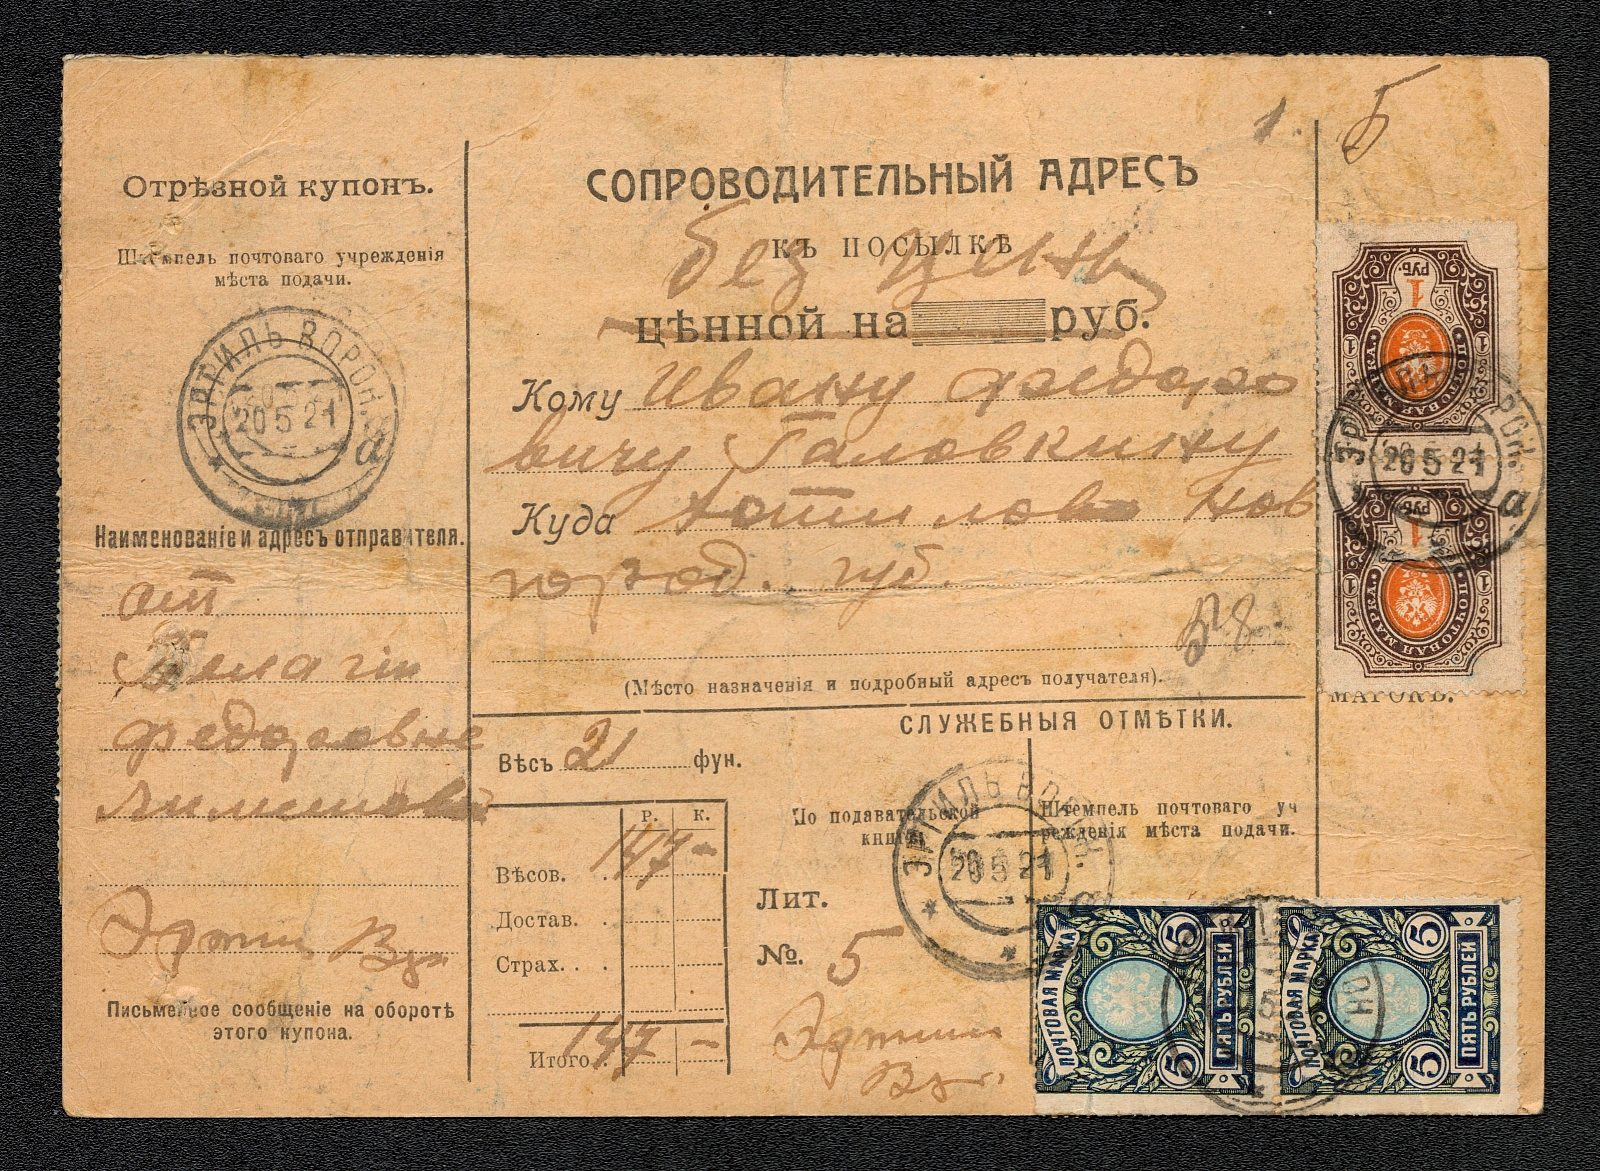 1. 5
Отрѣзной купонъ.
Штемпель почтоваго учрежденія
мѣста подачи.
ЭРТИЛЬ ВОРОН.
20 5 21
а
Наименованіе и адресъ отправителя.
от
Пелагіи
Федоровне
Эртиль Вр.
Письменное сообщеніе на оборотѣ
этого купона.
СОПРОВОДИТЕЛЬНЫЙ АДРЕСЪ
КЪ ПОСЫЛКѢ
без цены
цѣнной на руб.
Кому Ивану Федоро
вичу Галовкину
Куда Хотилово Нов
город. губ.
(Мѣсто назначенія и подробный адресъ получателя).
СЛУЖЕБНЫЯ ОТМѢТКИ.
Вѣсъ 21 фун.
Р. К.
Вѣсов. . 147 -
Достав. .
Страх. . .
Итого. . 147 -
По подавательской
книгѣ
Лит.
№. 5
Эртил
Вр.
Штемпель почтоваго уч
режденія мѣста подачи.
ЭРТИЛЬ ВОРОН.
20 5 21
а
1
РУБ.
ПОЧТОВАЯ МАРКА
1 1
ЭРТИЛЬ ВОРОН.
20 5 21
а
1
РУБ.
ПОЧТОВАЯ МАРКА
1 1
МАРОКЪ.
ПОЧТОВАЯ МАРКА
5 5
ПЯТЬ РУБЛЕЙ
ПОЧТОВАЯ МАРКА
5 5
ПЯТЬ РУБЛЕЙ